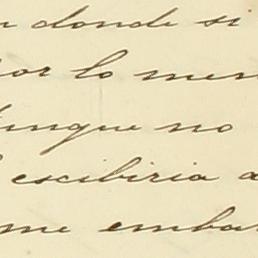 donde si
por lo men
Aunque no
escibiria a
me embar